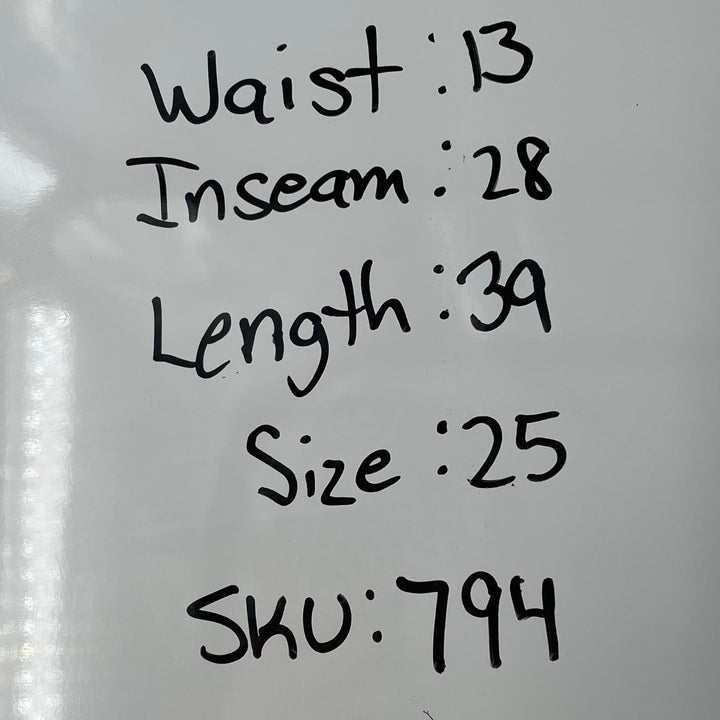 Waist: 13
Inseam: 28
Length: 39
Size: 25
SKU: 794